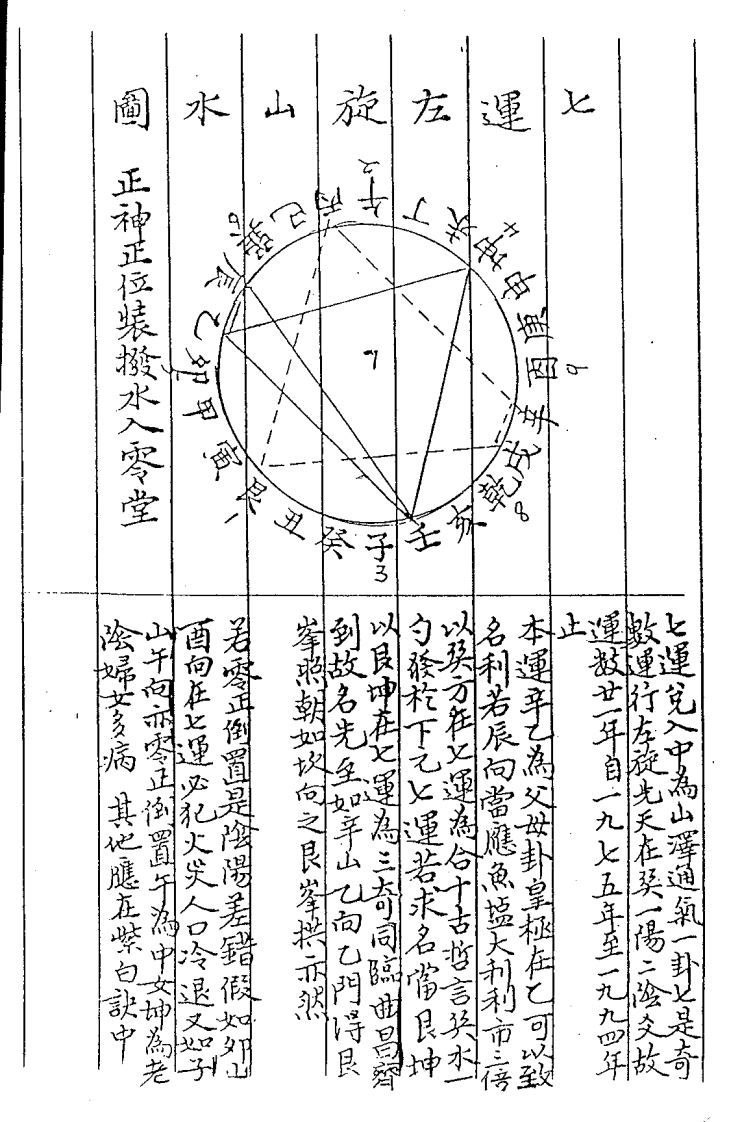 七運左旋山水圖
正神正位裝撥水入零堂
丙午丁未坤申庚酉辛戌乾亥壬子癸丑艮寅甲卯乙辰巽巳
7
2
4
9
8
3
1
5
6
七運兌入中為山澤通氣一卦七是奇
數運行左旋先天在癸一陽二陰爻故
運數廿一年自一九七五年至一九九四年
止
本運辛乙為父母卦皇極在乙可以致
名利若辰向當應魚塩大利利市三倍
以癸方在七運為合十古哲言癸水一
勺發於下乙七運若求名當艮坤
以艮坤在七運為三奇同臨曲昌齊
到故名先至如辛山乙向乙門得艮
峯照朝如坎向之艮峯拱亦然
若零正倒置是陰陽差錯假如卯山
酉向在七運必犯火災人口冷退又如子
山午向亦零正倒置午為中女坤為老
陰婦女多病 其他應在紫白訣中